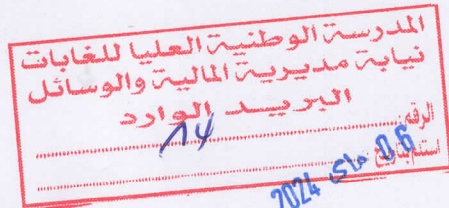 المدرسة الوطنية العليا للغابات
نيابة مديرية المالية والوسائل
البريد الوارد
الرقم: 14
استلم بتاريخ: 06 ماي 2024